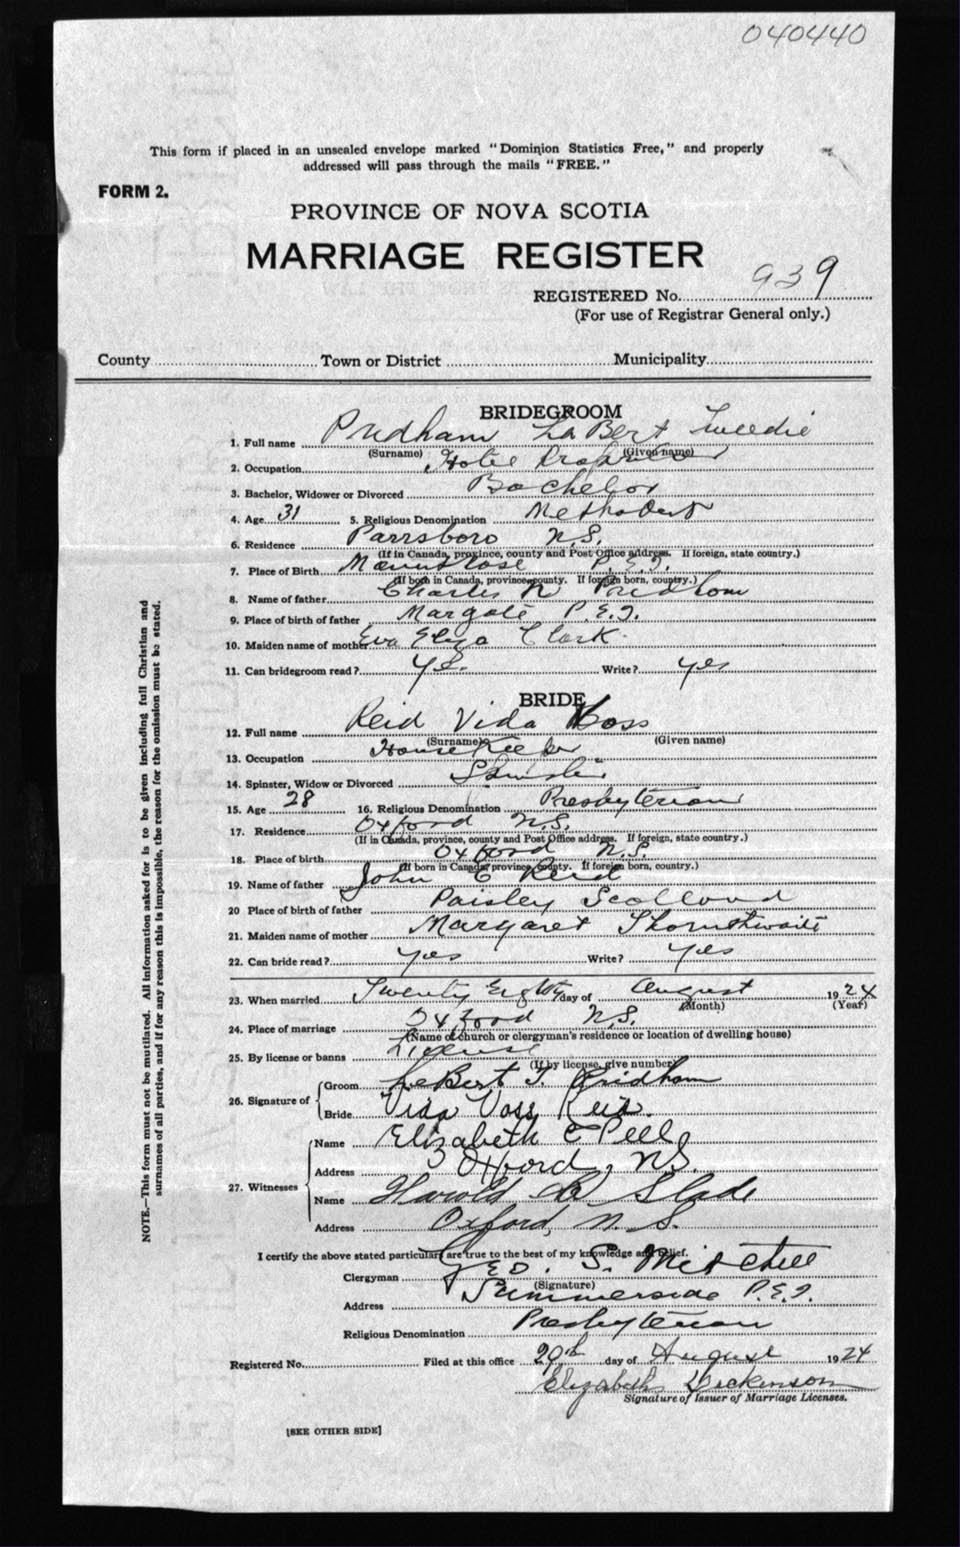 040440
This form if placed in an unsealed envelope marked "Dominion Statistics Free," and properly
addressed will pass through the mails "FREE."
FORM 2.
PROVINCE OF NOVA SCOTIA
MARRIAGE REGISTER
REGISTERED No. 939
(For use of Registrar General only.)
County Town or District Municipality
BRIDEGROOM
1. Full name Pridham LaBert Tweedie
(Surname) (Given name)
2. Occupation Hotel
3. Bachelor, Widower or Divorced Bachelor
4. Age 31 5. Religious Denomination Methodist
6. Residence Parrsboro N.S.
(If in Canada, province, county and Post Office address. If foreign, state country.)
7. Place of Birth Montrose P.E.I.
(If both in Canada, province, county. If foreign born, country.)
8. Name of father Charles W Pridham
9. Place of birth of father Margate P.E.I.
10. Maiden name of mother Eva Eliza Clark
11. Can bridegroom read? Yes Write? yes
BRIDE
12. Full name Reid Vida Voss
(Surname) (Given name)
13. Occupation House Keeper
14. Spinster, Widow or Divorced Spinster
15. Age 28 16. Religious Denomination Presbyterian
17. Residence Oxford N.S.
(If in Canada, province, county and Post Office address. If foreign, state country.)
18. Place of birth Oxford N.S.
(If born in Canada, province, county. If foreign born, country.)
19. Name of father John C Reid
20 Place of birth of father Paisley Scotland
21. Maiden name of mother Margaret Thornthwaite
22. Can bride read? Yes Write? Yes
23. When married Twenty Eighth day of August 1924
(Month) (Year)
24. Place of marriage Oxford N.S.
(Name of church or clergyman's residence or location of dwelling house)
25. By license or banns License
(If by license, give number)
26. Signature of
Groom LeBert T. Pridham
Bride Vida Voss Reid.
27. Witnesses
Name Elizabeth E Peel
Address Oxford, N.S.
Name Harold B Slade
Address Oxford, N.S.
I certify the above stated particulars are true to the best of my knowledge and belief.
Clergyman Geo. S. Mitchell
(Signature)
Address Summerside P.E.I.
Religious Denomination Presbyterian
Registered No. Filed at this office 29th day of August 1924
Elizabeth Dickinson
Signature of Issuer of Marriage Licenses.
[SEE OTHER SIDE]
NOTE.—This form must not be mutilated. All information asked for is to be given including full Christian and
surnames of all parties, and if for any reason this is impossible, the reason for the omission must be stated.